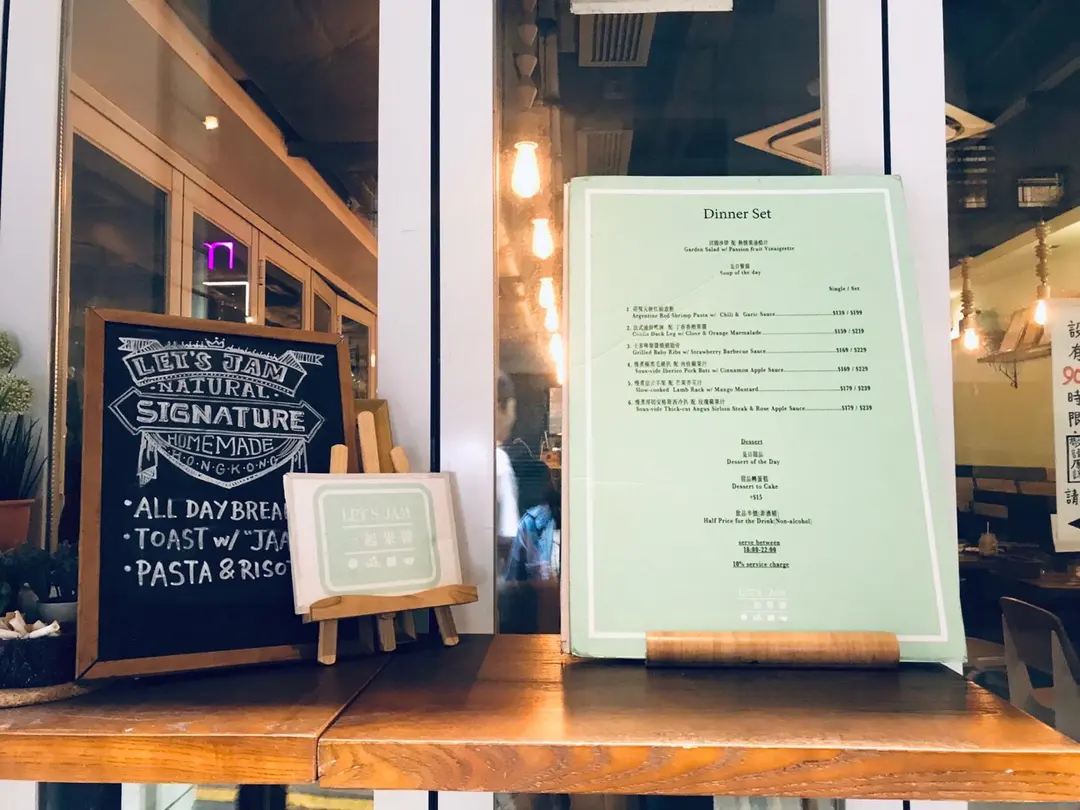 LET'S JAM
NATURAL
SIGNATURE
HOMEMADE
HONGKONG
•ALL DAY BREA
•TOAST w/ "JAA
•PASTA & RISO
LET'S JAM
一起果醬
Dinner Set
Garden Salad w/ Passion fruit Vinaigrette
是日餐湯
Soup of the day
Single / Set
Argentine Red Shrimp Pasta w/ Chili & Garic Sauce $139 / $199
Confit Duck Leg w/ Clove & Orange Marmalade $159 / $219
Grilled Baby Ribs w/ Strawberry Barbecue Sauce $169 / $229
Sous-vide Iberico Pork Butt w/ Cinnamon Apple Sauce $169 / $229
Slow-cooked Lamb Rack w/ Mango Mustard $179 / $239
Sous-vide Thick-cut Angus Sirloin Steak & Rose Apple Sauce $179 / $239
Dessert
是日甜品
Dessert of the Day
甜品轉蛋糕
Dessert to Cake
+$15
飲品半價(非酒精)
Half Price for the Drink(Non-alcohol)
serve between
18:00-22:00
10% service charge
LET'S JAM
一起果醬
90
時
限
請